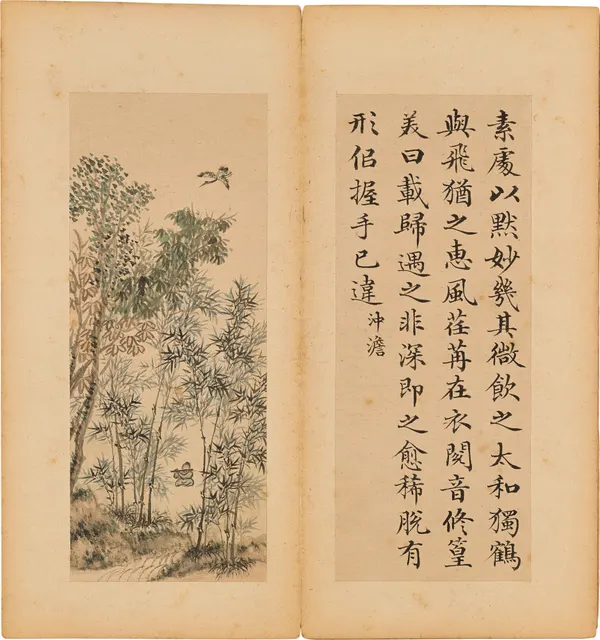 素處以默妙幾其微飲之太和獨鶴
與飛猶之惠風荏苒在衣閱音修篁
美曰載歸遇之非深即之愈稀脫有
形佀握手已違 沖澹